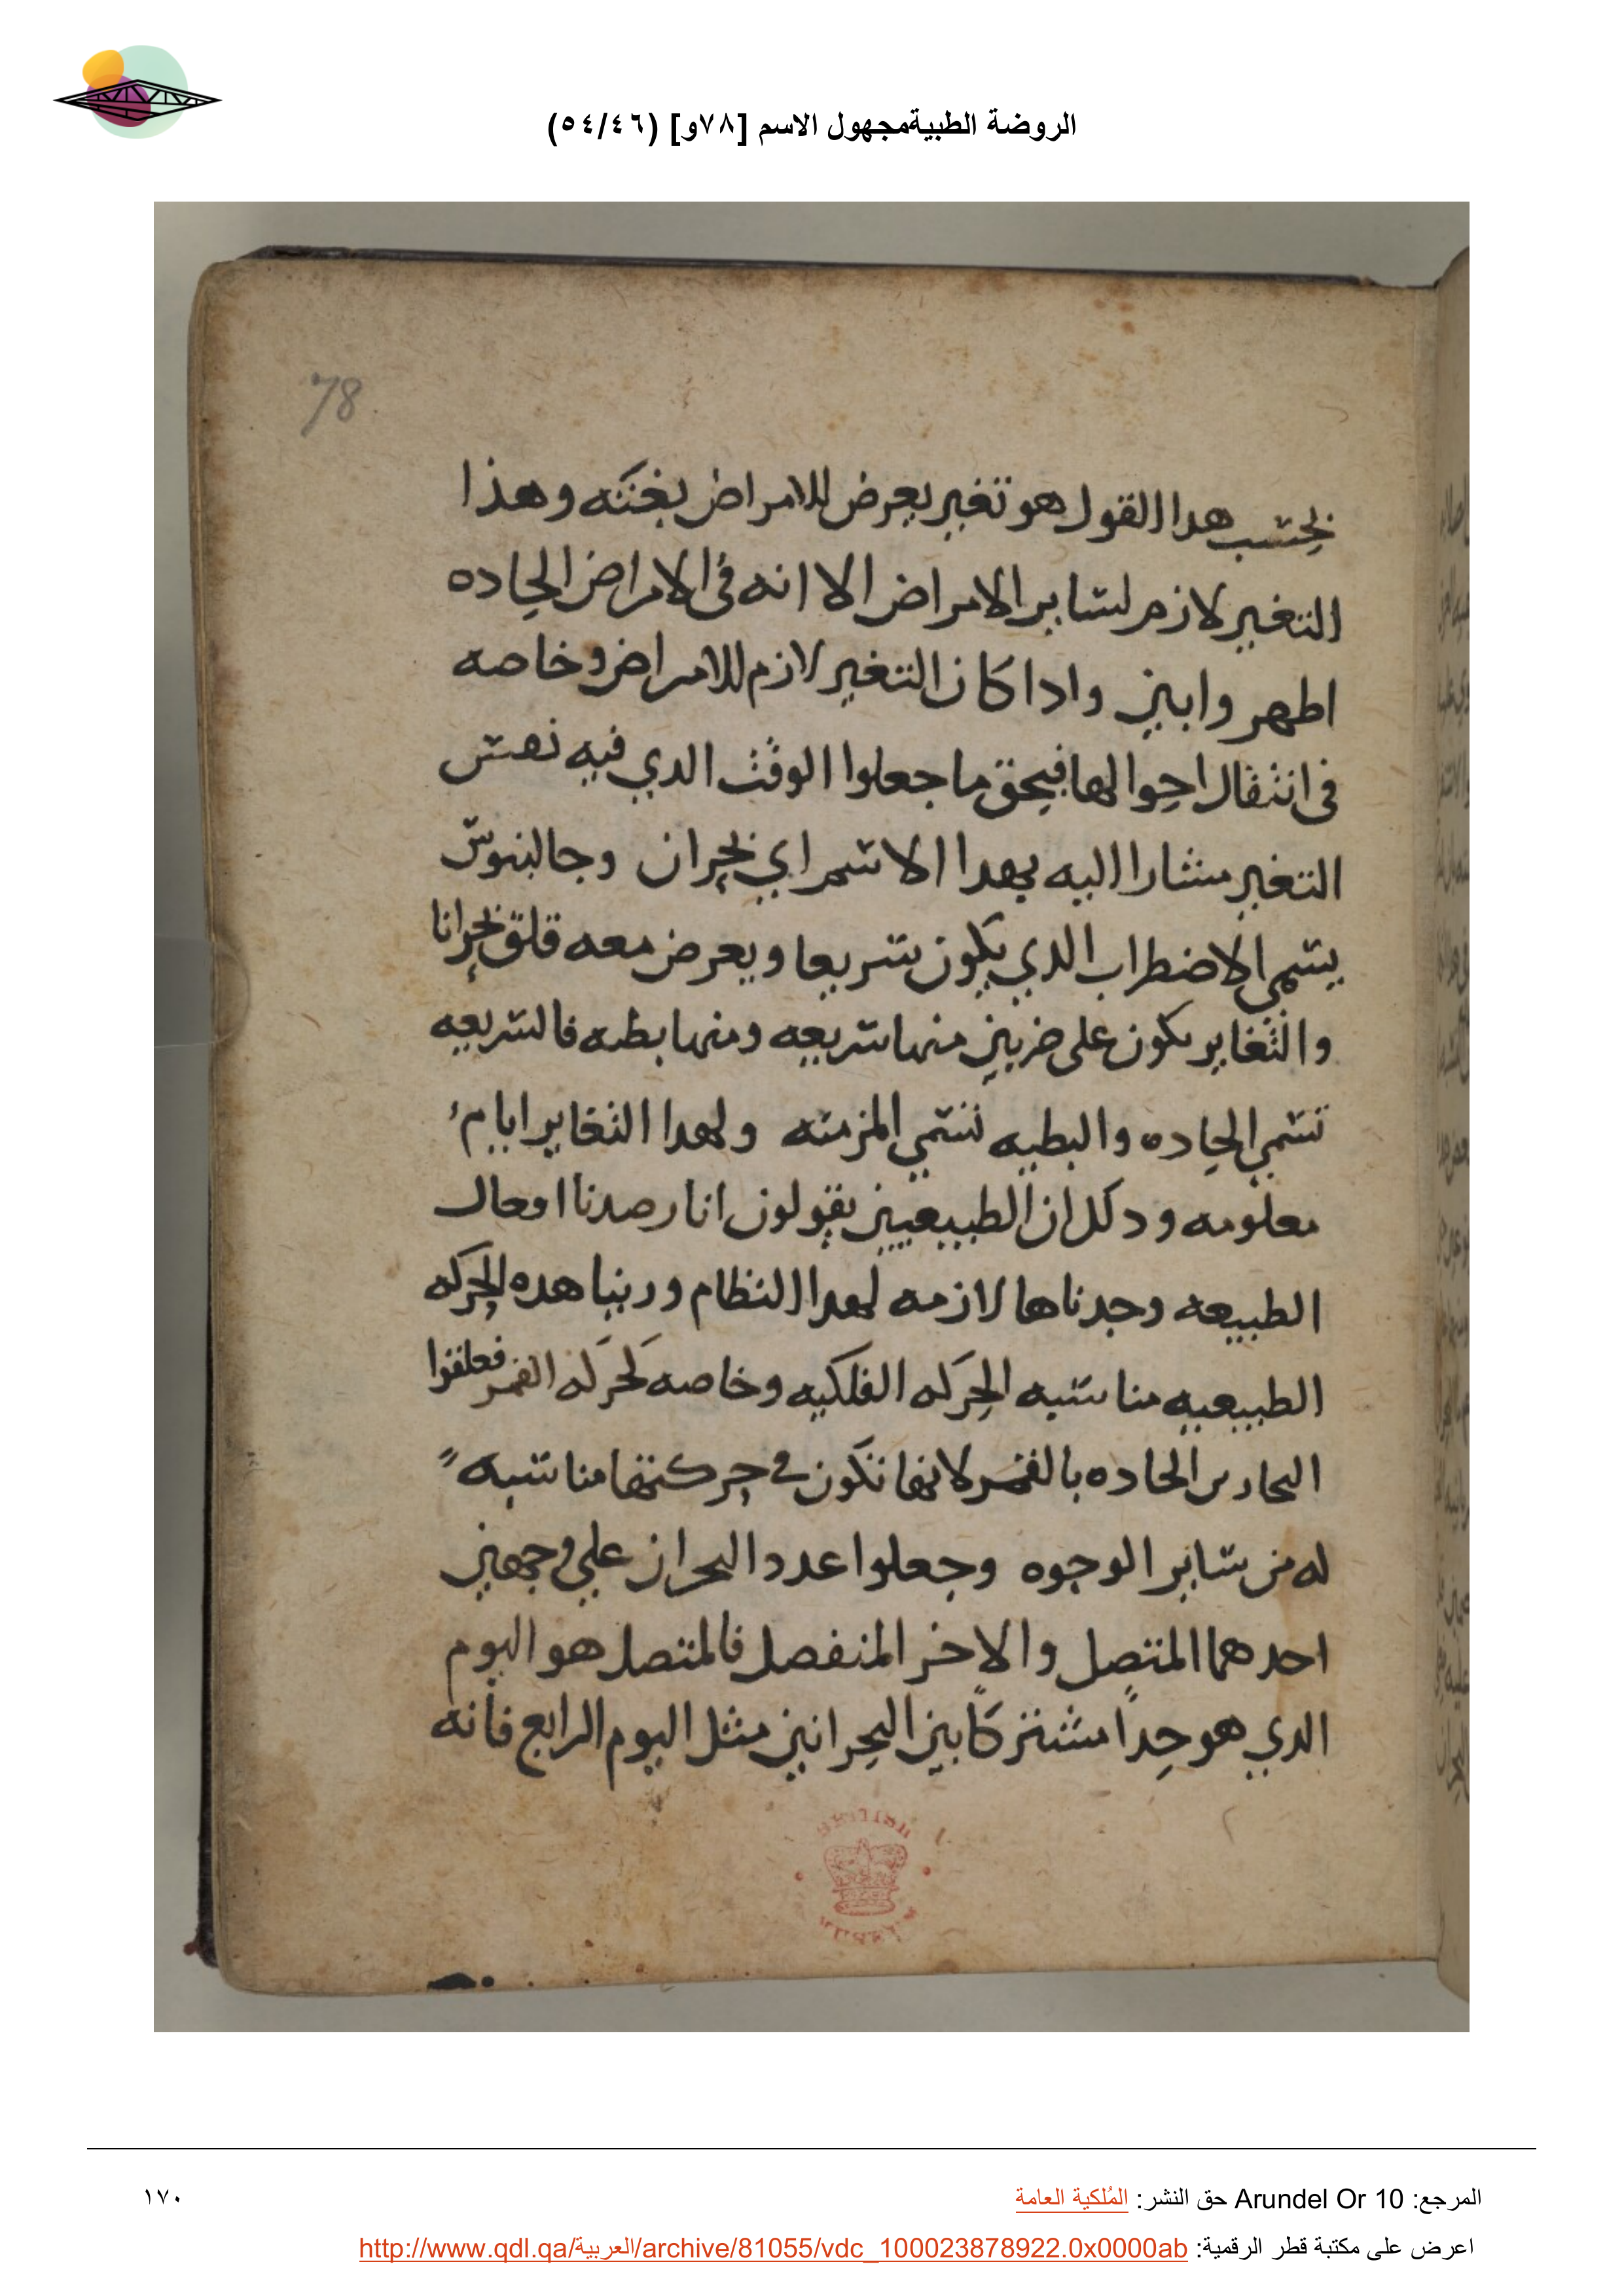 الروضة الطبيةمجهول الاسم [٧٨و] (٥٤/٤٦)
78
بحسب هدا القول هو تغير يعرض للامراض بغتته وهذا
التغير لازم لساير الامراض الا انه في الامراض الحاده
اطهر وابين وادا كان التغير لازم للامراض وخاصه
في انتقال احوالها فبحق ما جعلوا الوقت الدي فيه
التغير مشارا اليه بهدا الاسم اي بحران وجالينوس
يسمي الاضطراب الدي يكون سريعا ويعرض معه قلق بحرانا
والتغاير يكون على ضربين منها سريعه ومنها بطيه فالسريعه
تسمي الحاده والبطيه تسمي المزمنه ولهدا التغاير ايام
معلومه ودلك ان الطبيعيين يقولون انا رصدنا افعال
الطبيعه وجدناها لازمه لهدا النظام وربنا هده الحركه
الطبيعيه مناسبه الحركه الفلكيه وخاصه لحركه القمر فعلقوا
البحارين الحاده بالقمر لانها تكون في حركتها مناسبه
له من ساير الوجوه وجعلوا عدد البحران علي وجهين
احدهما المتصل والاخر المنفصل فالمتصل هو اليوم
الدي هو حدا مشتركا بين البحرانين مثل اليوم الرابع فانه
المرجع: Arundel Or 10 حق النشر: المُلكية العامة
١٧٠
اعرض على مكتبة قطر الرقمية: http://www.qdl.qa/العربية/archive/81055/vdc_100023878922.0x0000ab